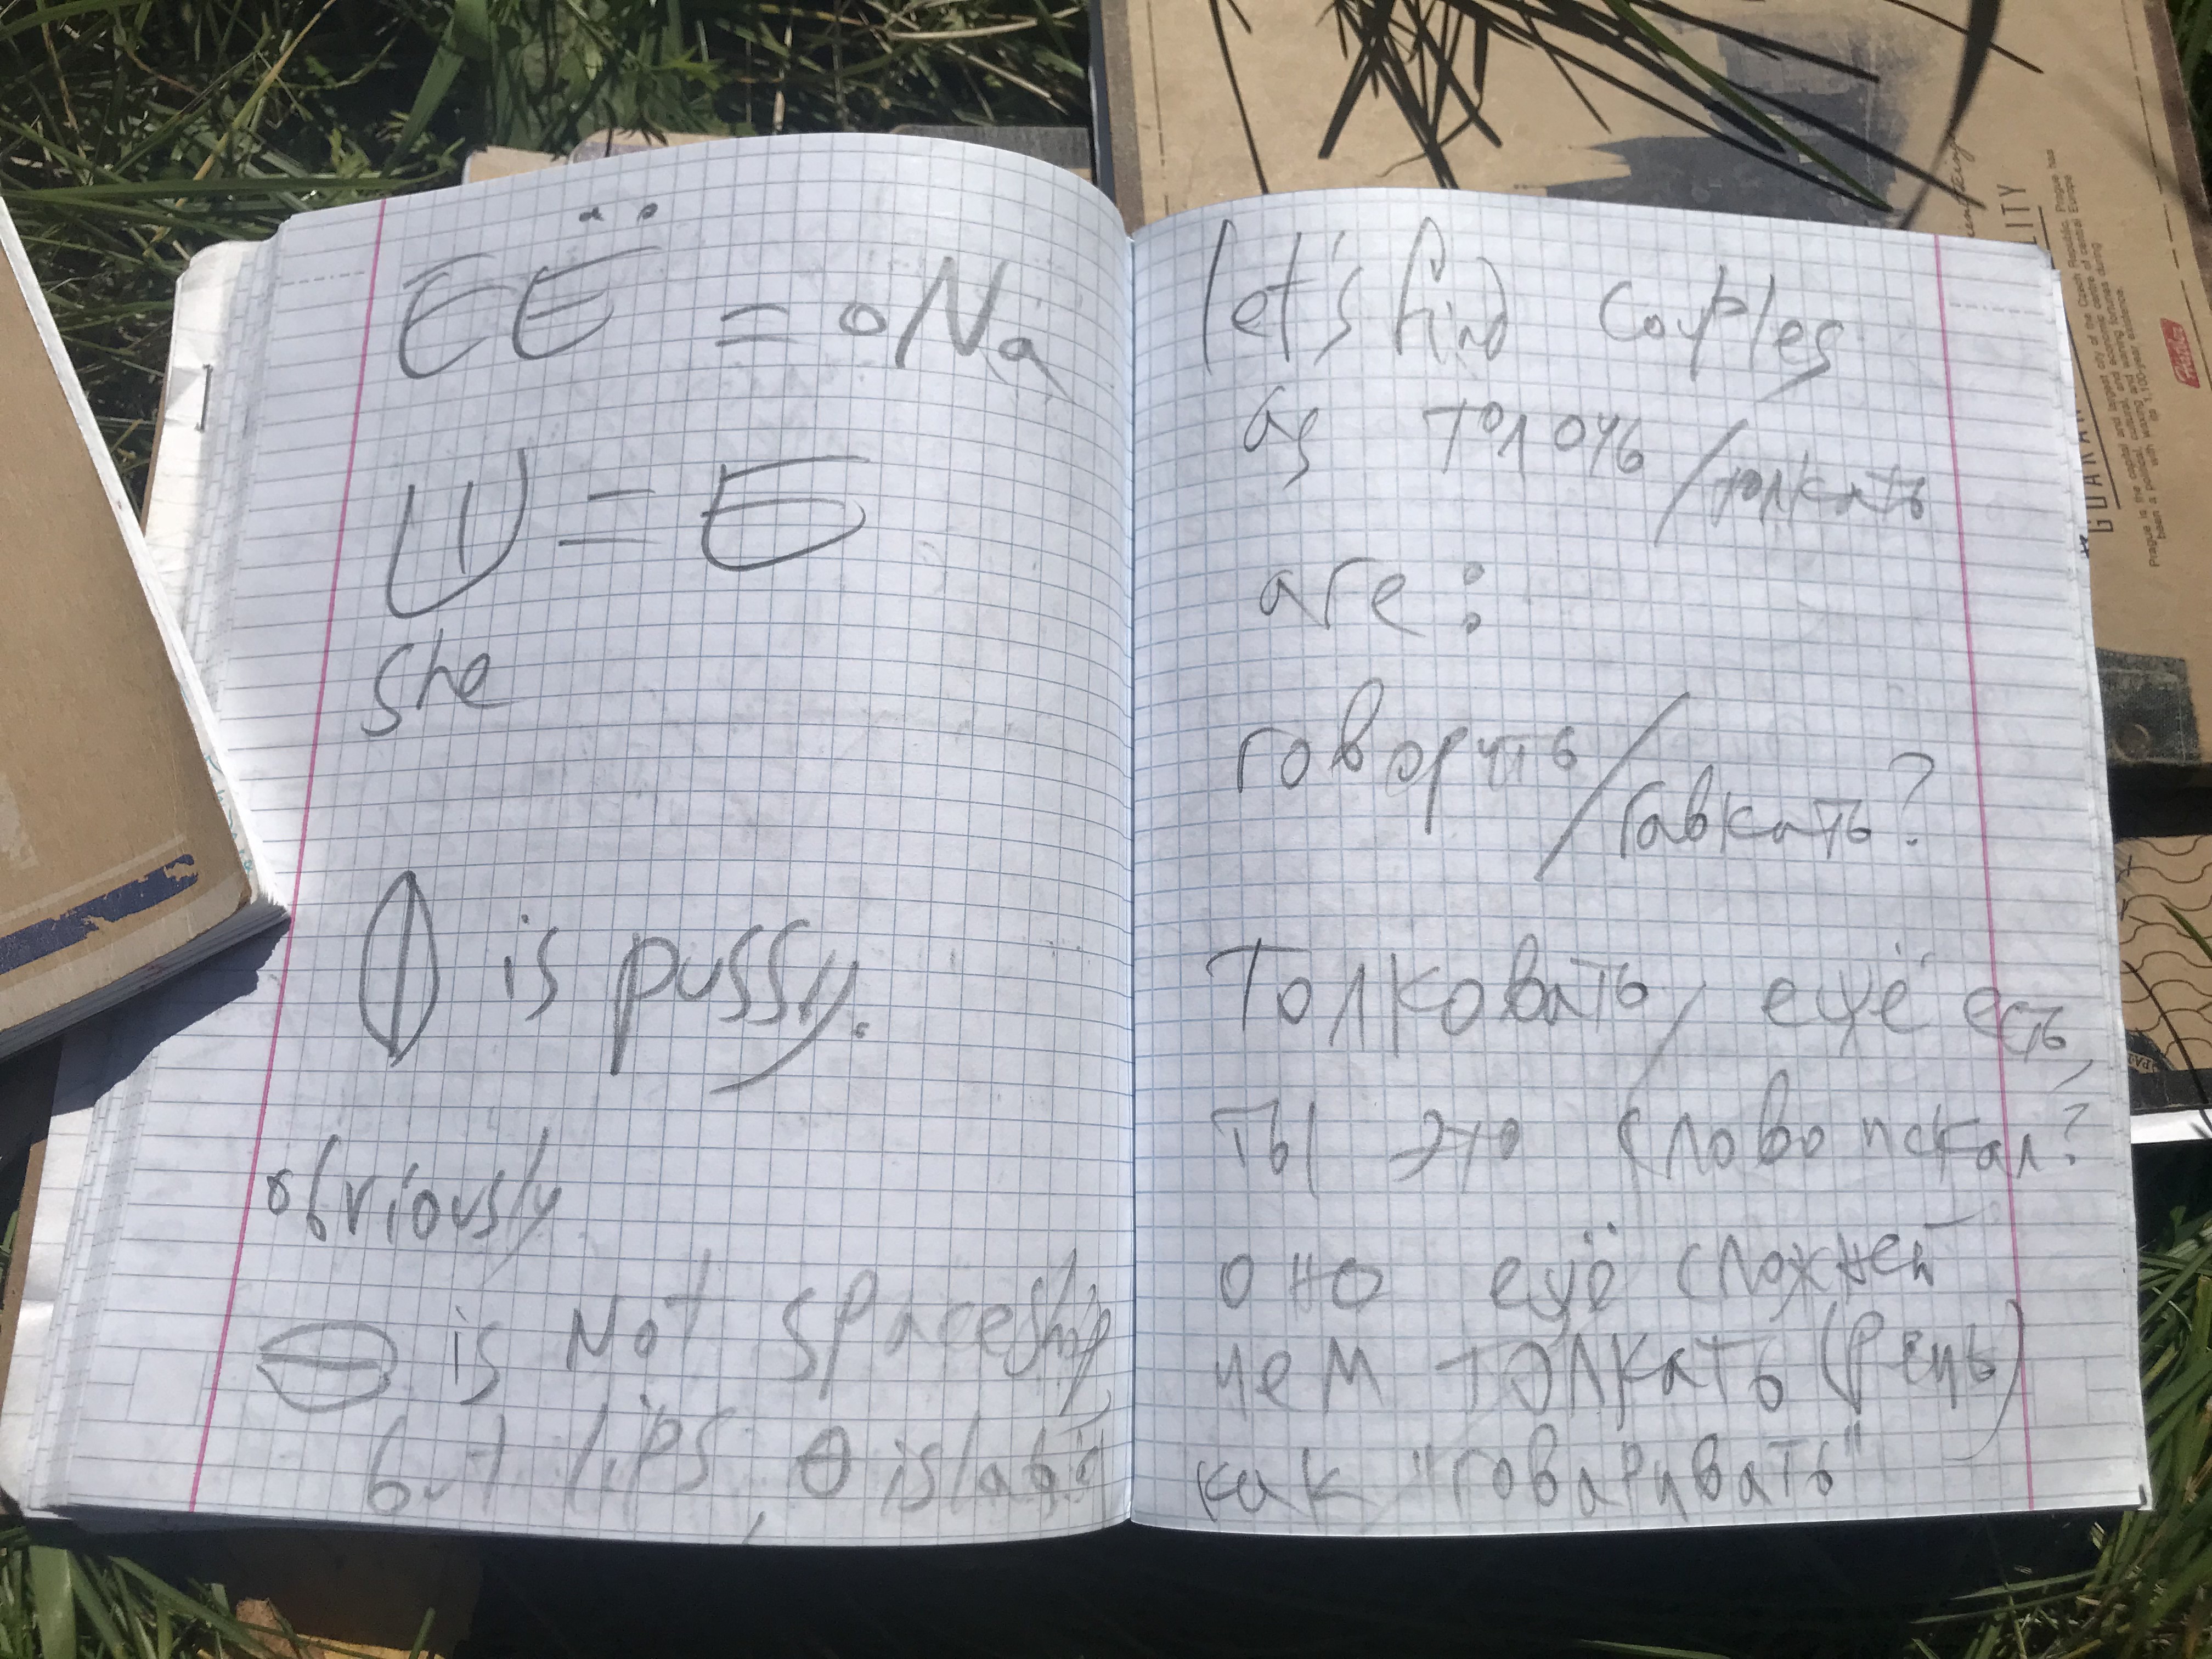 ЕЁ = oNa
Ш = E
she
is pussy.
obviously
is Not spaceship,
but lips, θ is labia
let's find couples
as толочь/толкать
are:
говорить/гавкать?
толковать, ещё есть,
ты это слово искал?
оно ещё сложней
чем толкать (речь)
как "говаривать"
QUALITY
Prague is the capital and largest city of the Czech Republic. Prague has
been a political, cultural, and economic centre of central Europe
with waxing and waning fortunes during
its 1,100-year existence.